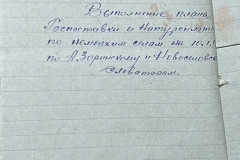 Выполнение плана
Госпоставки и Натуроплаты
по немецким селам на 10.1.
по А.Зоринскому и Новоселовс
Элеваторам.